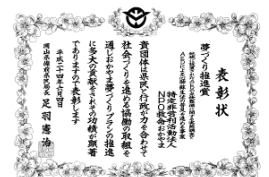 表彰状
夢づくり推進賞
特定非営利活動法人
NPO救命おかやま
貴団体は県民と行政が力を合わせて
社会づくりを進める協働の取組を
通しおかやま夢づくりプランの推進
に多大の貢献をされその功績が顕著
でありますので表彰します
平成二十四年六月四日
岡山県備前県民局長 足羽憲治